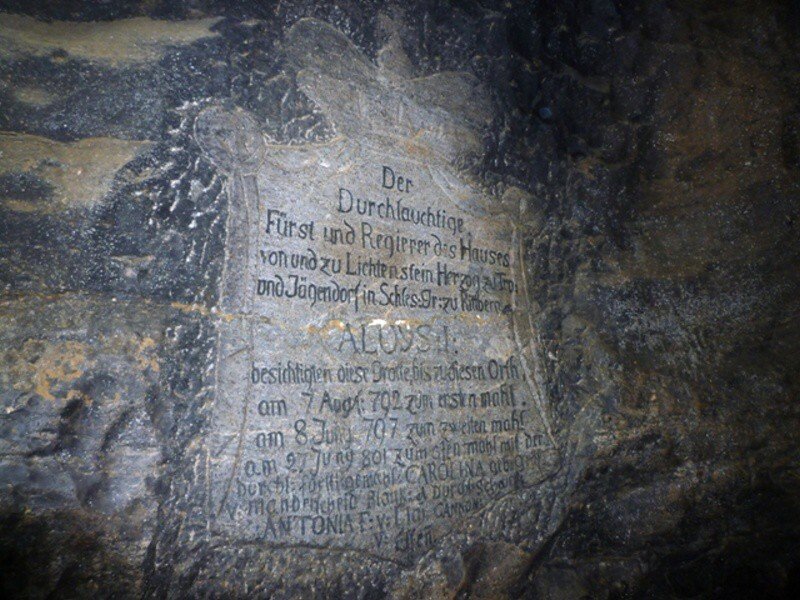 Der
Durchlauchtige
Fürst und Regierer des Hauses
von und zu Lichtenstein Herzog zu Trop:
und Jägendorf in Schles: Gr: zu
ALOYS I:
besichtigten diese Grotte bis zu diesen Orth
am 7 Aug: 792 zum ersten mahl
am 8 Juny 797 zum zweiten mahl
am 27 Juny 801 zum 3ten mahl mit der
durchl: CAROLINA
v manderscheid Blank: d
ANTONIA